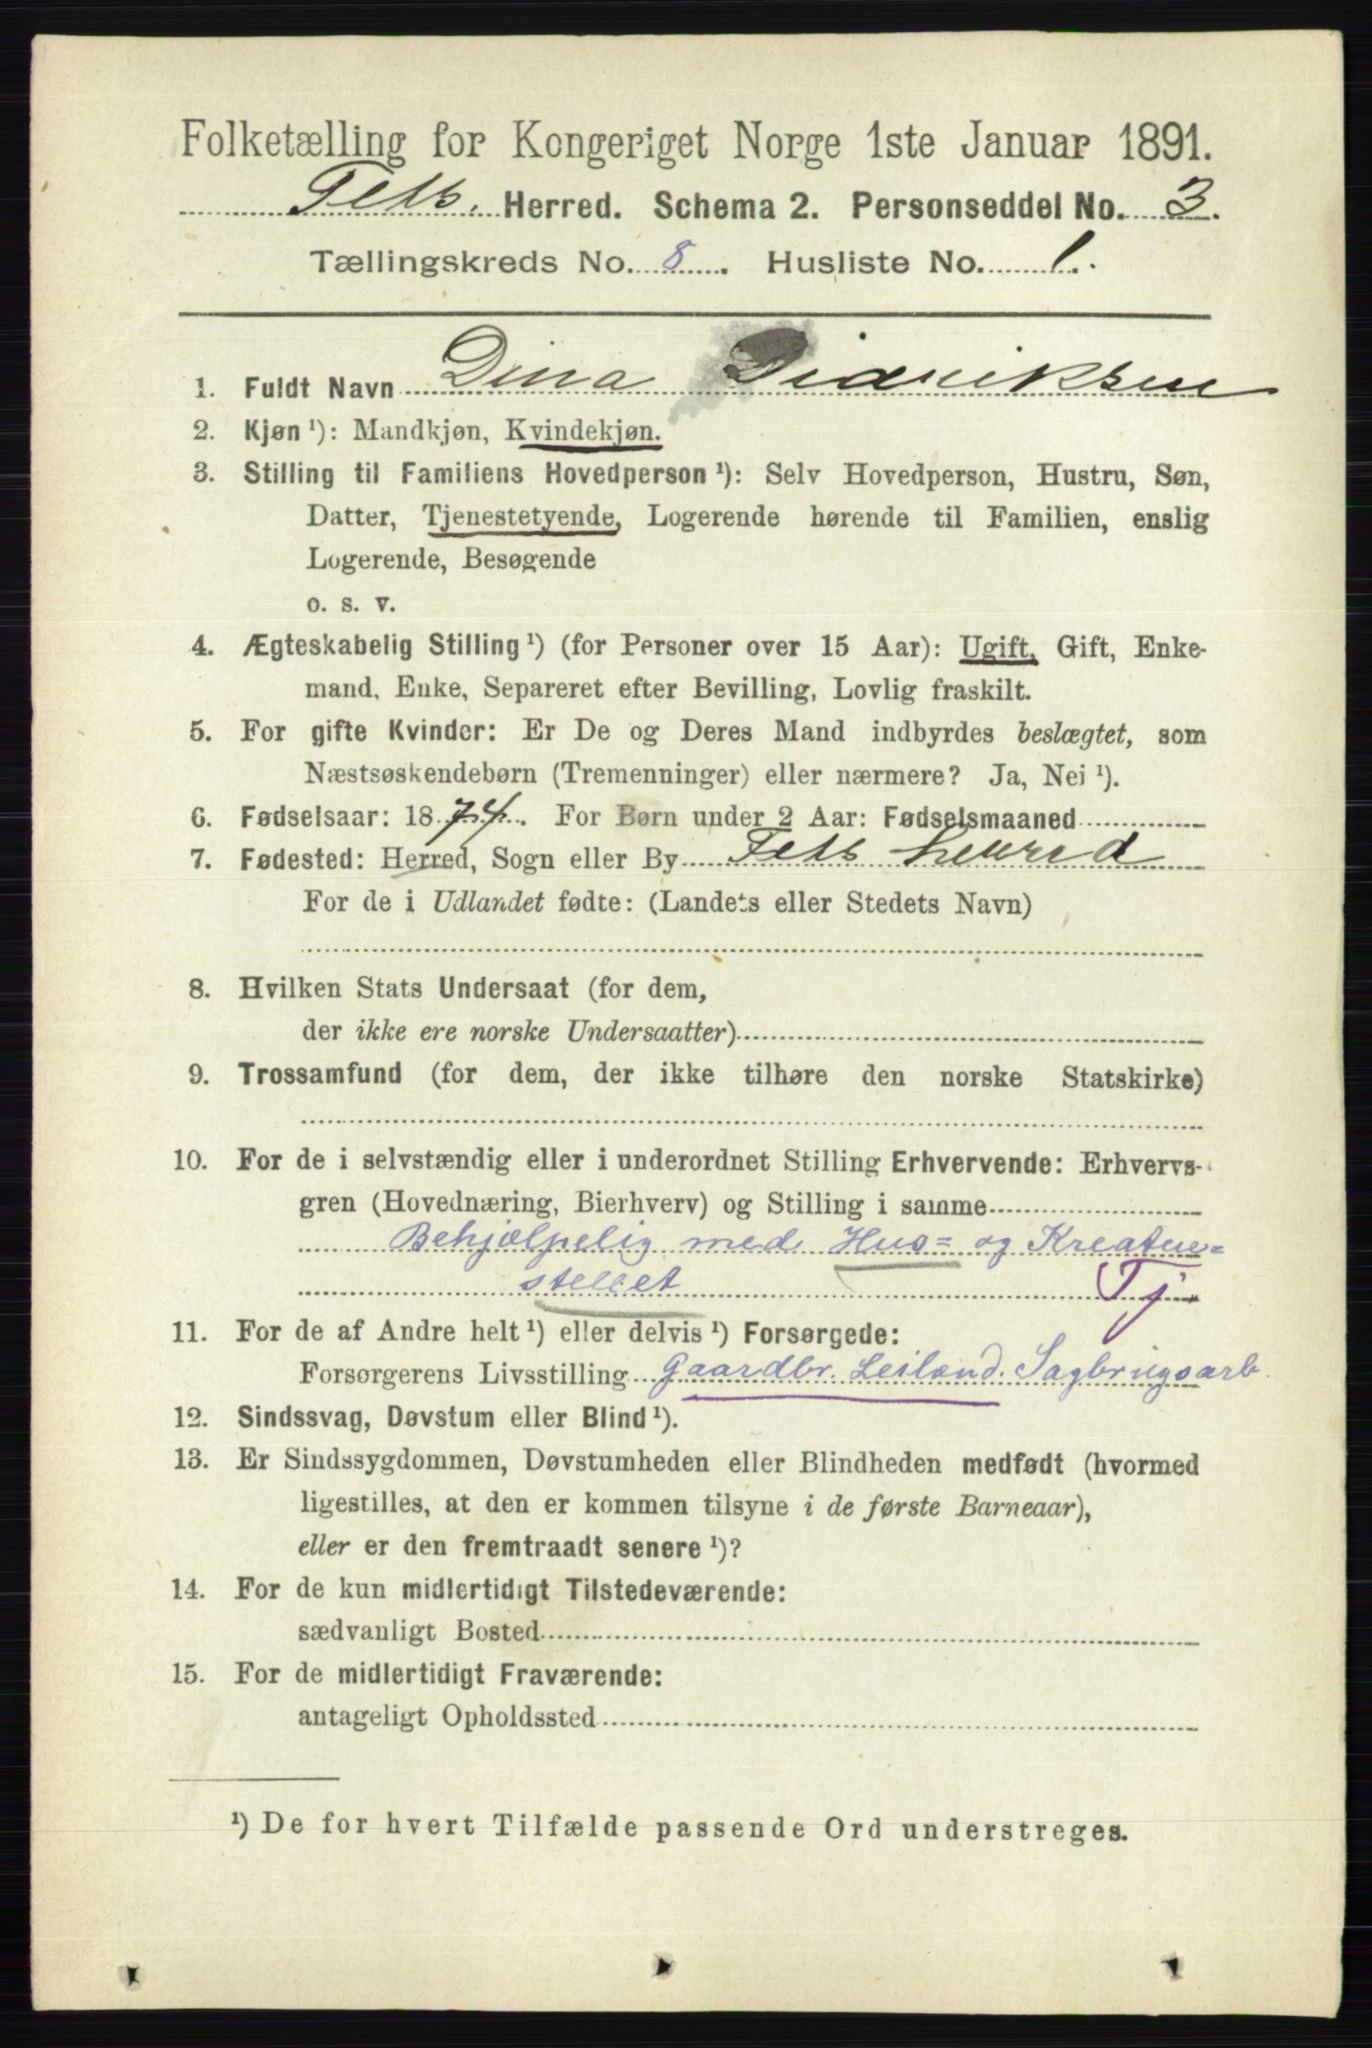 Folketælling for Kongeriget Norge 1ste Januar 1891.
Fetb. Herred. Schema 2. Personseddel No. 3.
Tællingskreds No. 8. Husliste No. 1.
1. Fuldt Navn Dina Didriksen
2. Kjøn ¹): Mandkjøn, Kvindekjøn.
3. Stilling til Familiens Hovedperson ¹): Selv Hovedperson, Hustru, Søn,
Datter, Tjenestetyende, Logerende hørende til Familien, enslig
Logerende, Besøgende
o. s. v.
4. Ægteskabelig Stilling ¹) (for Personer over 15 Aar): Ugift, Gift, Enke-
mand, Enke, Separeret efter Bevilling, Lovlig fraskilt.
5. For gifte Kvinder: Er De og Deres Mand indbyrdes beslægtet, som
Næstsøskendebørn (Tremenninger) eller nærmere? Ja, Nei ¹).
6. Fødselsaar: 1874. For Børn under 2 Aar: Fødselsmaaned
7. Fødested: Herred, Sogn eller By Fetb herred
For de i Udlandet fødte: (Landets eller Stedets Navn)
8. Hvilken Stats Undersaat (for dem,
der ikke ere norske Undersaatter)
9. Trossamfund (for dem, der ikke tilhøre den norske Statskirke)
10. For de i selvstændig eller i underordnet Stilling Erhvervende: Erhvervs-
gren (Hovednæring, Bierhverv) og Stilling i samme
Behjælpelig med Hus= og Kreatur=
stellet Tj.
11. For de af Andre helt ¹) eller delvis ¹) Forsørgede:
Forsørgerens Livsstilling Gaardbr. Leilænd. Sagbrugsarb.
12. Sindssvag, Døvstum eller Blind ¹).
13. Er Sindssygdommen, Døvstumheden eller Blindheden medfødt (hvormed
ligestilles, at den er kommen tilsyne i de første Barneaar),
eller er den fremtraadt senere ¹)?
14. For de kun midlertidigt Tilstedeværende:
sædvanligt Bosted
15. For de midlertidigt Fraværende:
antageligt Opholdssted
¹) De for hvert Tilfælde passende Ord understreges.